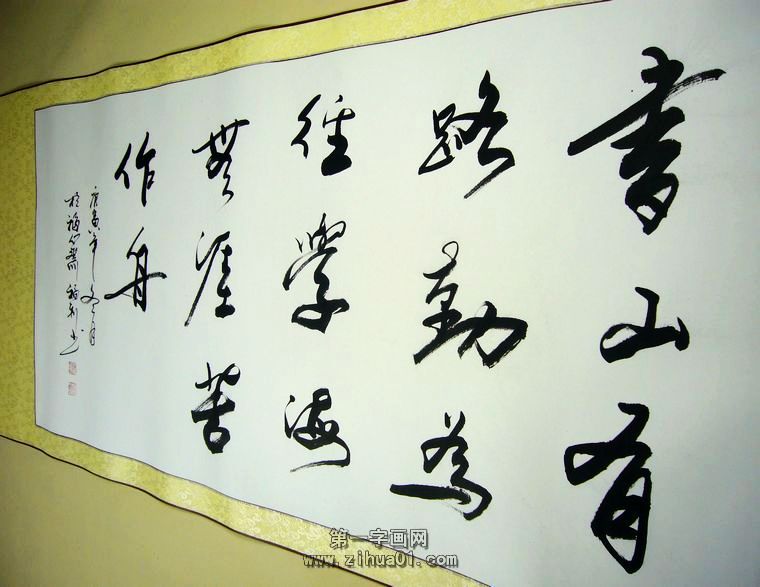 書山有
路勤為
徑學海
無涯苦
作舟
庚寅年冬月
第一字画网
www.zihua01.com